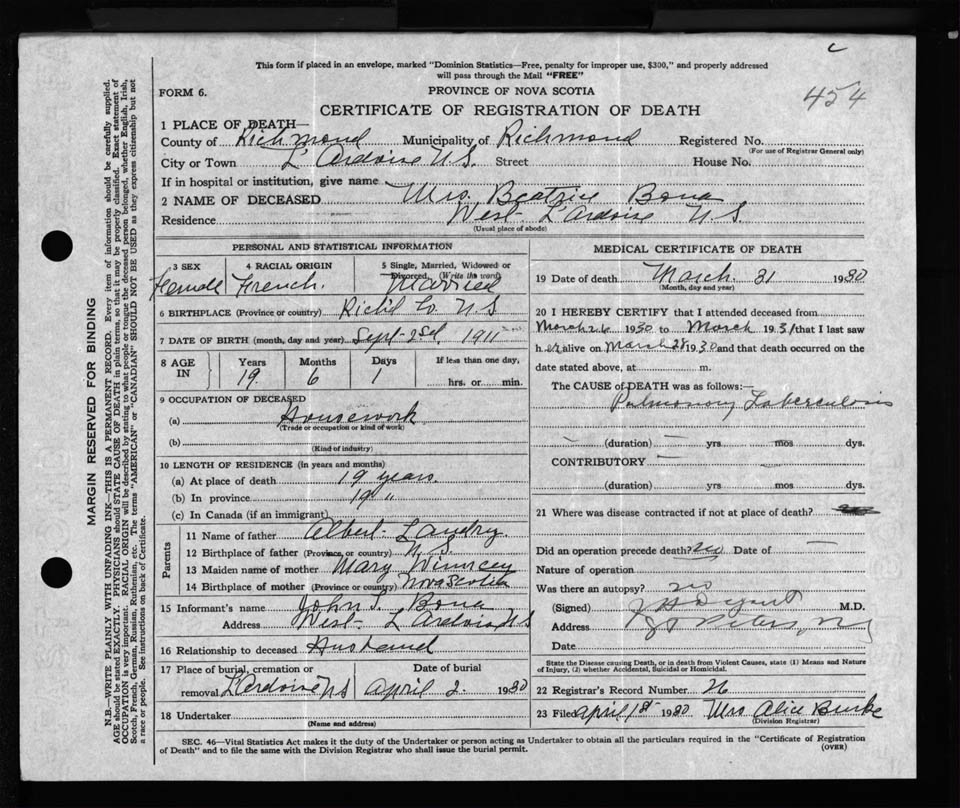 c
454
This form if placed in an envelope, marked "Dominion Statistics—Free, penalty for improper use, $300," and properly addressed
will pass through the Mail "FREE"
FORM 6.
PROVINCE OF NOVA SCOTIA
CERTIFICATE OF REGISTRATION OF DEATH
1 PLACE OF DEATH—
County of Richmond Municipality of Richmond Registered No.
(For use of Registrar General only)
City or Town L'Ardoise N.S. Street House No.
If in hospital or institution, give name
2 NAME OF DECEASED Mrs. Beatrice Bona
Residence West L'Ardoise N S
(Usual place of abode)
PERSONAL AND STATISTICAL INFORMATION
3 SEX 4 RACIAL ORIGIN 5 Single, Married, Widowed or
Divorced. (Write the word)
Female French. Married
6 BIRTHPLACE (Province or country) Rich'd Co. N S
7 DATE OF BIRTH (month, day and year) Sept 2nd, 1911
8 AGE IN Years Months Days If less than one day,
19 6 1 hrs. or min.
9 OCCUPATION OF DECEASED
(a) Housework
(Trade or occupation or kind of work)
(b)
(Kind of industry)
10 LENGTH OF RESIDENCE (in years and months)
(a) At place of death 19 years.
(b) In province 19 "
(c) In Canada (if an immigrant)
Parents
11 Name of father Albert Landry
12 Birthplace of father (Province, or country) N. S.
13 Maiden name of mother Mary
14 Birthplace of mother (Province or country) Nova Scotia
15 Informant's name John J. Bona
Address West L'Ardoise N S
16 Relationship to deceased Husband
17 Place of burial, cremation or Date of burial
removal L'Ardoise N S April 2 1930
18 Undertaker
(Name and address)
MEDICAL CERTIFICATE OF DEATH
19 Date of death March 31 1930
(Month, day and year)
20 I HEREBY CERTIFY that I attended deceased from
March 26 1930 to March 1931 that I last saw
h er alive on March 28 1930 and that death occurred on the
date stated above, at m.
The CAUSE of DEATH was as follows:—
Pulmonary Tuberculosis
(duration) yrs mos dys.
CONTRIBUTORY
(duration) yrs. mos. dys.
21 Where was disease contracted if not at place of death?
Did an operation precede death? no Date of —
Nature of operation
Was there an autopsy? no
(Signed) M.D.
Address
Date
State the Disease causing Death, or in death from Violent Causes, state (1) Means and Nature
of Injury, (2) whether Accidental, Suicidal or Homicidal.
22 Registrar's Record Number 26
23 Filed April 1st 1930 Mrs Alice Burke
(Division Registrar)
SEC. 46—Vital Statistics Act makes it the duty of the Undertaker or person acting as Undertaker to obtain all the particulars required in the "Certificate of Registration
of Death" and to file the same with the Division Registrar who shall issue the burial permit.
(OVER)
MARGIN RESERVED FOR BINDING
N.B.—WRITE PLAINLY WITH UNFADING INK—THIS IS A PERMANENT RECORD. Every item of information should be carefully supplied.
AGE should be stated EXACTLY. PHYSICIANS should STATE CAUSE OF DEATH in plain terms, so that it may be properly classified. Exact statement of
OCCUPATION is very important. RACIAL ORIGIN will be described by stating to what people or tongue the deceased person belonged, whether English, Irish,
Scotch, French, German, Russian, Ruthenian, etc. The terms "AMERICAN" or "CANADIAN" SHOULD NOT BE USED as they express citizenship but not
a race or people. See instructions on back of Certificate.